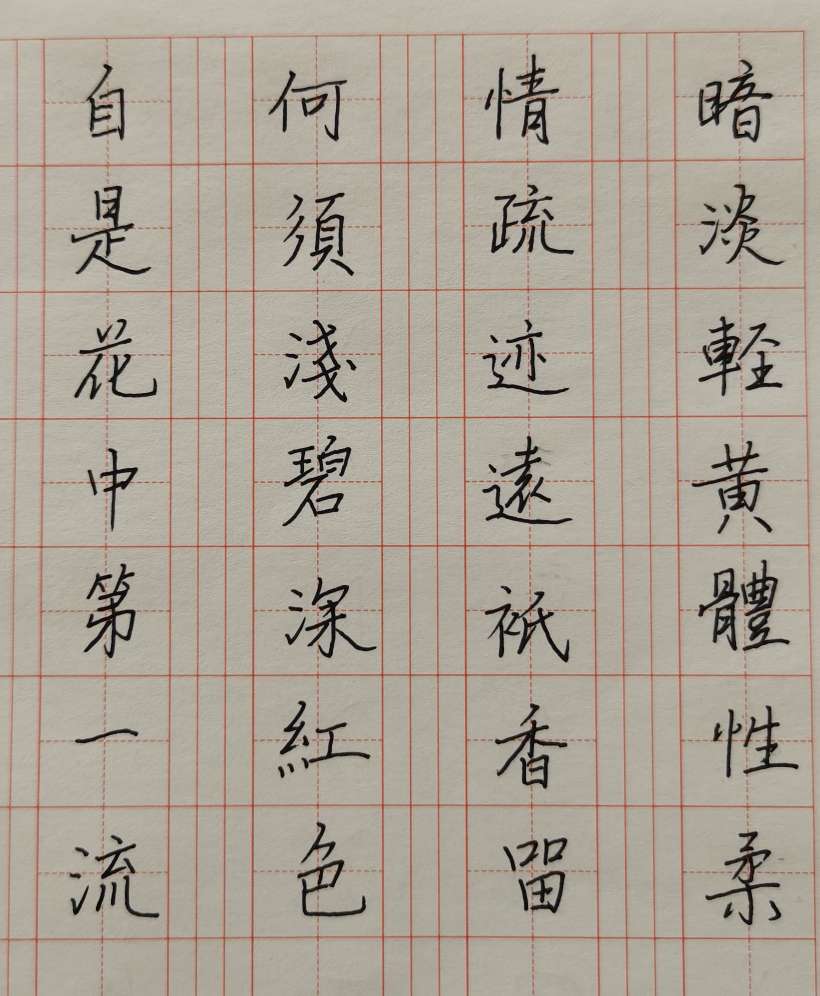 暗淡輕黄體性柔
情疏迹遠衹香留
何須淺碧深紅色
自是花中第一流